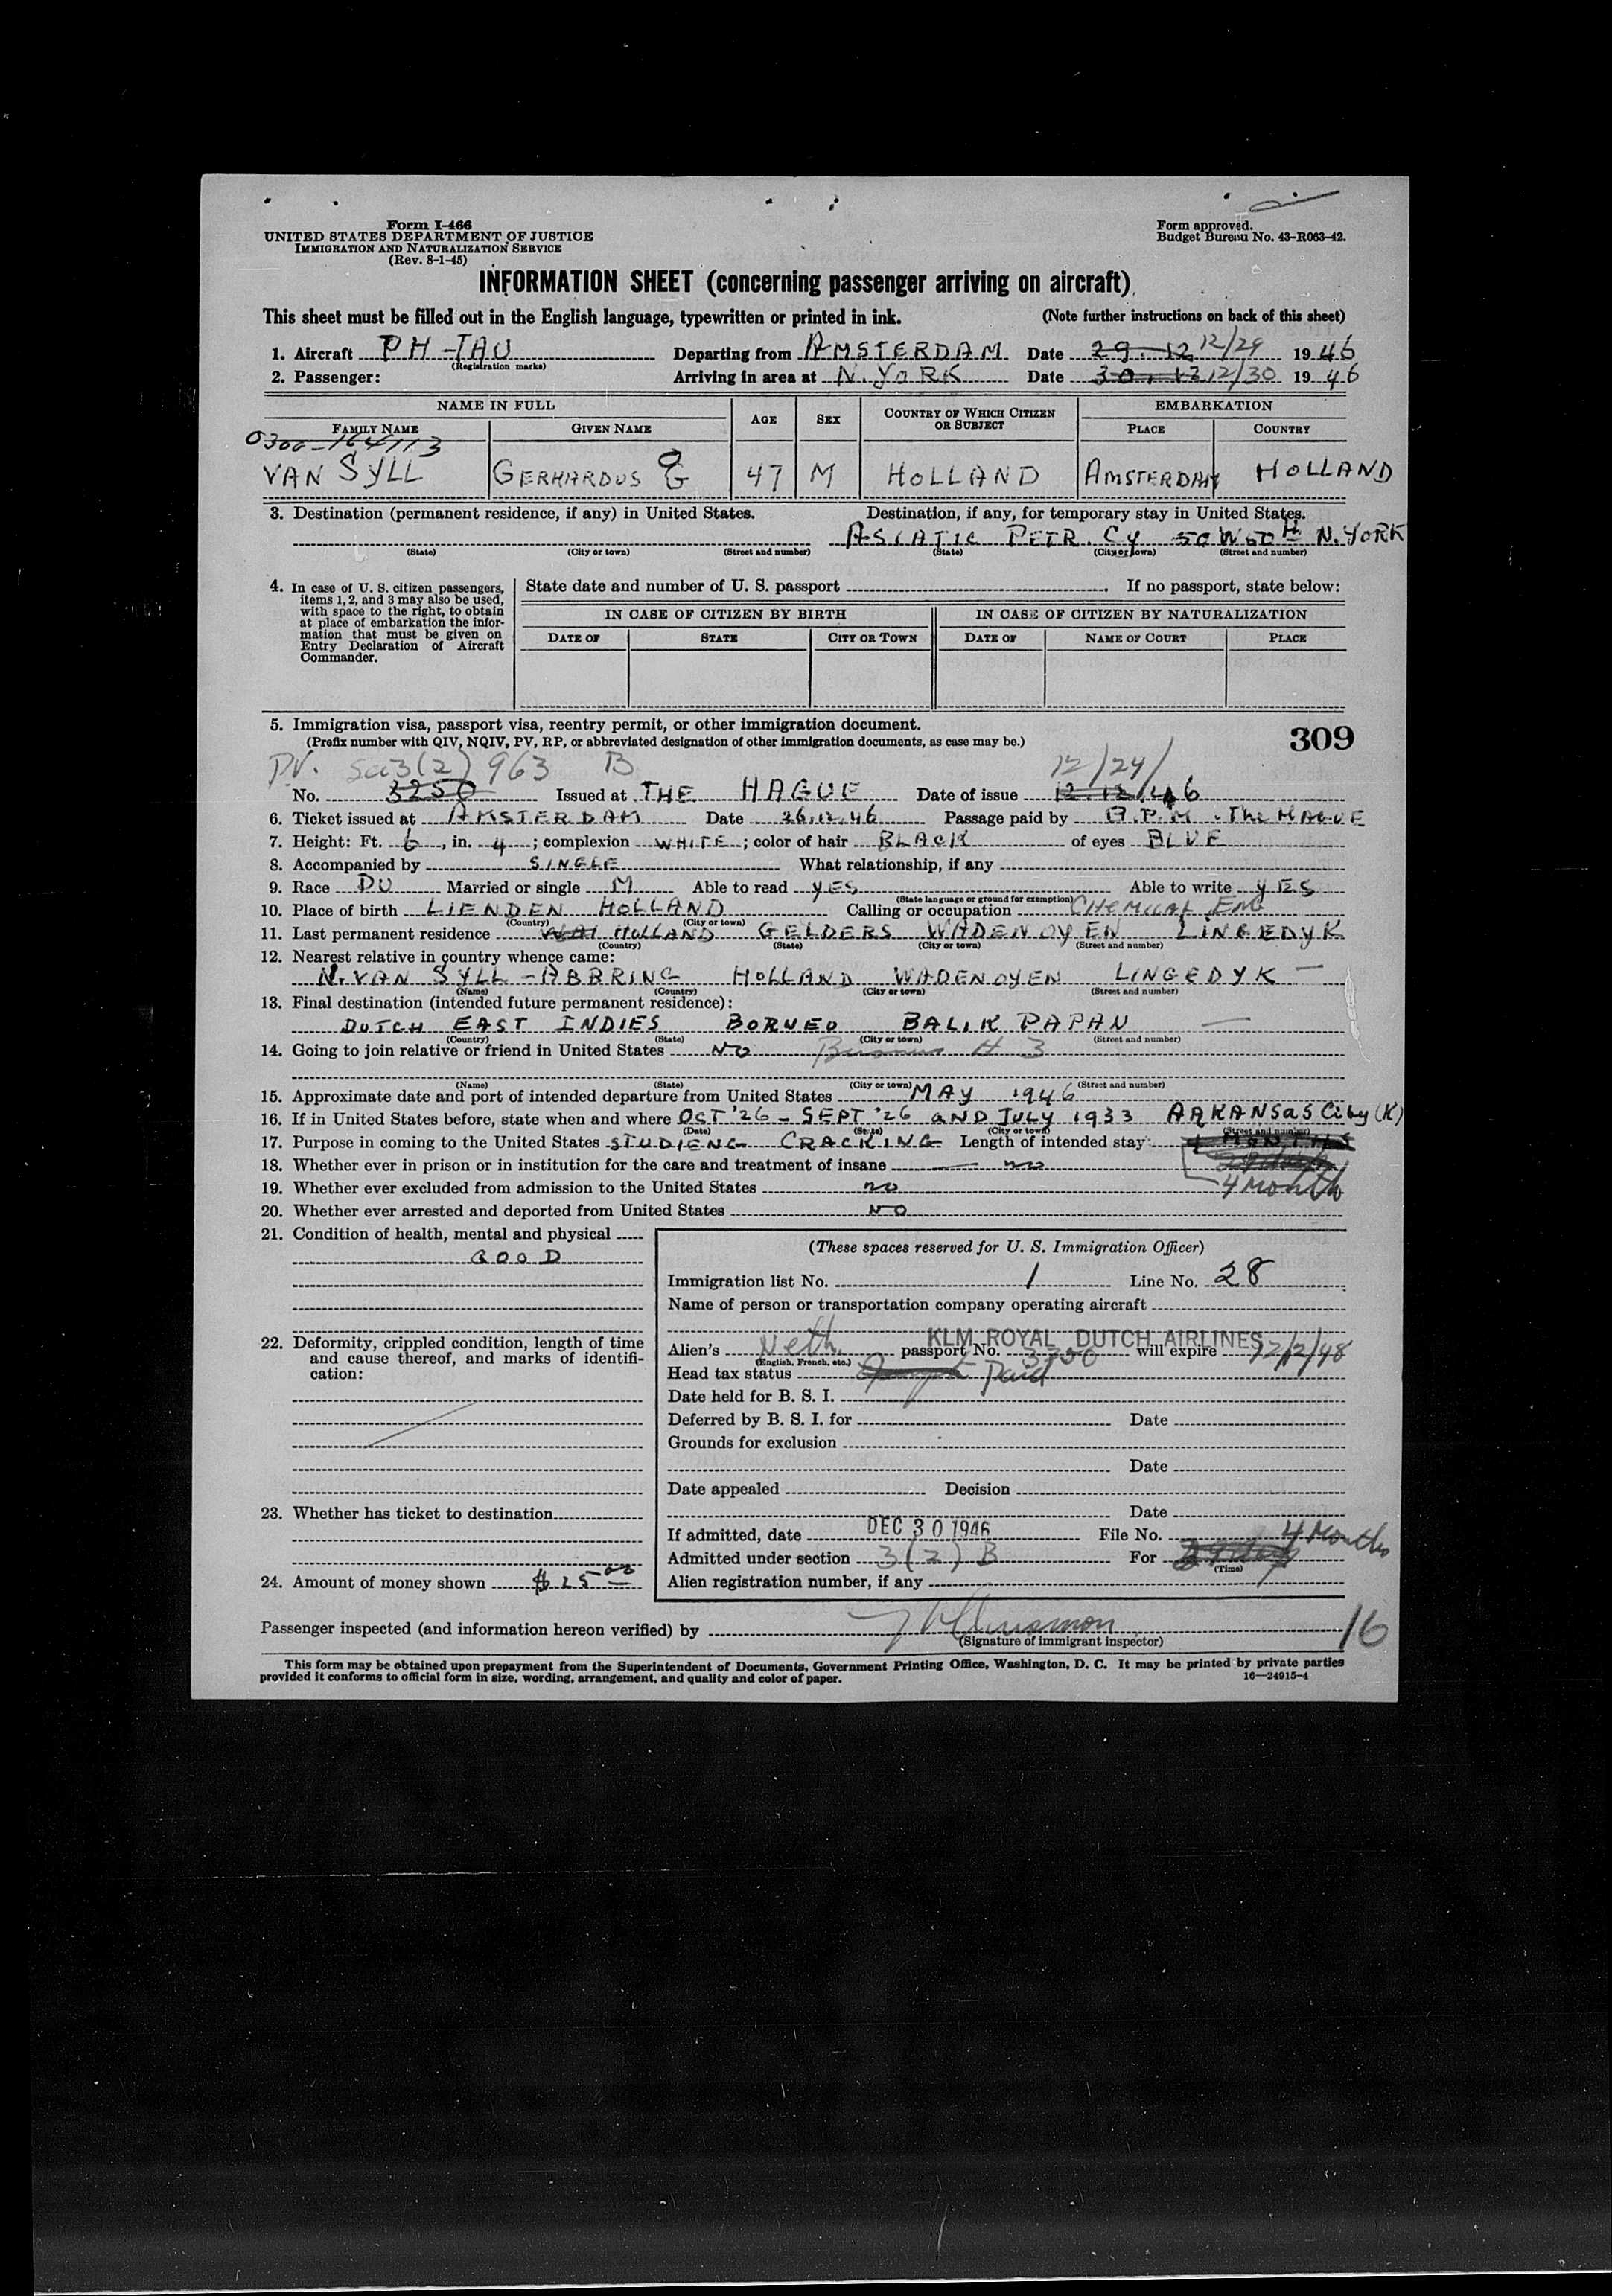 Form I-466
UNITED STATES DEPARTMENT OF JUSTICE
IMMIGRATION AND NATURALIZATION SERVICE
(Rev. 8-1-45)
Form approved.
Budget Bureau No. 43-R063-42.
INFORMATION SHEET (concerning passenger arriving on aircraft)
This sheet must be filled out in the English language, typewritten or printed in ink. (Note further instructions on back of this sheet)
1. Aircraft PH-TAU Departing from AMSTERDAM Date 29.12 12/29 1946
(Registration marks)
2. Passenger: Arriving in area at N.YORK Date 30.12 12/30 1946
NAME IN FULL AGE SEX COUNTRY OF WHICH CITIZEN OR SUBJECT EMBARKATION
FAMILY NAME GIVEN NAME PLACE COUNTRY
0300-164113
VAN SYLL GERHARDUS G 47 M HOLLAND AMSTERDAM HOLLAND
3. Destination (permanent residence, if any) in United States. Destination, if any, for temporary stay in United States.
ASIATIC PETR. Cy 50 W 50th N.YORK
(State) (City or town) (Street and number) (State) (City or town) (Street and number)
4. In case of U. S. citizen passengers, items 1, 2, and 3 may also be used, with space to the right, to obtain at place of embarkation the information that must be given on Entry Declaration of Aircraft Commander.
State date and number of U. S. passport If no passport, state below:
IN CASE OF CITIZEN BY BIRTH IN CASE OF CITIZEN BY NATURALIZATION
DATE OF STATE CITY OR TOWN DATE OF NAME OF COURT PLACE
5. Immigration visa, passport visa, reentry permit, or other immigration document.
(Prefix number with QIV, NQIV, PV, RP, or abbreviated designation of other immigration documents, as case may be.)
309
PV. Sec 3(2) 963 B 12/24/
No. 3250 Issued at THE HAGUE Date of issue 12.12/46
6. Ticket issued at AMSTERDAM Date 26.12.46 Passage paid by B.P.M. The HAGUE
7. Height: Ft. 6, in. 4; complexion WHITE; color of hair BLACK of eyes BLUE
8. Accompanied by SINGLE What relationship, if any
9. Race DU Married or single M Able to read YES Able to write YES
(State language or ground for exemption)
10. Place of birth LIENDEN HOLLAND Calling or occupation CHEMICAL ENG
(Country) (City or town)
11. Last permanent residence HOLLAND GELDERS WADENOYEN LINGEDYK
(Country) (State) (City or town) (Street and number)
12. Nearest relative in country whence came:
N. VAN SYLL-ABBRING HOLLAND WADENOYEN LINGEDYK
(Name) (Country) (City or town) (Street and number)
13. Final destination (intended future permanent residence):
DUTCH EAST INDIES BORNEO BALIK PAPAN
(Country) (State) (City or town) (Street and number)
14. Going to join relative or friend in United States NO
(Name) (State) (City or town) (Street and number)
15. Approximate date and port of intended departure from United States MAY 1946
16. If in United States before, state when and where OCT '26 - SEPT '26 AND JULY 1933 ARKANSAS City (K)
(Date) (State) (City or town) (Street and number)
17. Purpose in coming to the United States STUDIENG CRACKING Length of intended stay 4 MONTHS
18. Whether ever in prison or in institution for the care and treatment of insane no
4 Month
19. Whether ever excluded from admission to the United States no
20. Whether ever arrested and deported from United States NO
21. Condition of health, mental and physical
GOOD
22. Deformity, crippled condition, length of time and cause thereof, and marks of identification:
23. Whether has ticket to destination
24. Amount of money shown $25.00
(These spaces reserved for U. S. Immigration Officer)
Immigration list No. 1 Line No. 28
Name of person or transportation company operating aircraft
KLM ROYAL DUTCH AIRLINES
Alien's Neth. passport No. will expire 12/12/48
(English, French, etc.)
Head tax status Paid
Date held for B. S. I.
Deferred by B. S. I. for Date
Grounds for exclusion
Date
Date appealed Decision
Date
If admitted, date DEC 30 1946 File No. 4 Months
Admitted under section 3(2) B For
(Time)
Alien registration number, if any
Passenger inspected (and information hereon verified) by
(Signature of immigrant inspector)
16
This form may be obtained upon prepayment from the Superintendent of Documents, Government Printing Office, Washington, D. C. It may be printed by private parties
provided it conforms to official form in size, wording, arrangement, and quality and color of paper. 16—24915-4